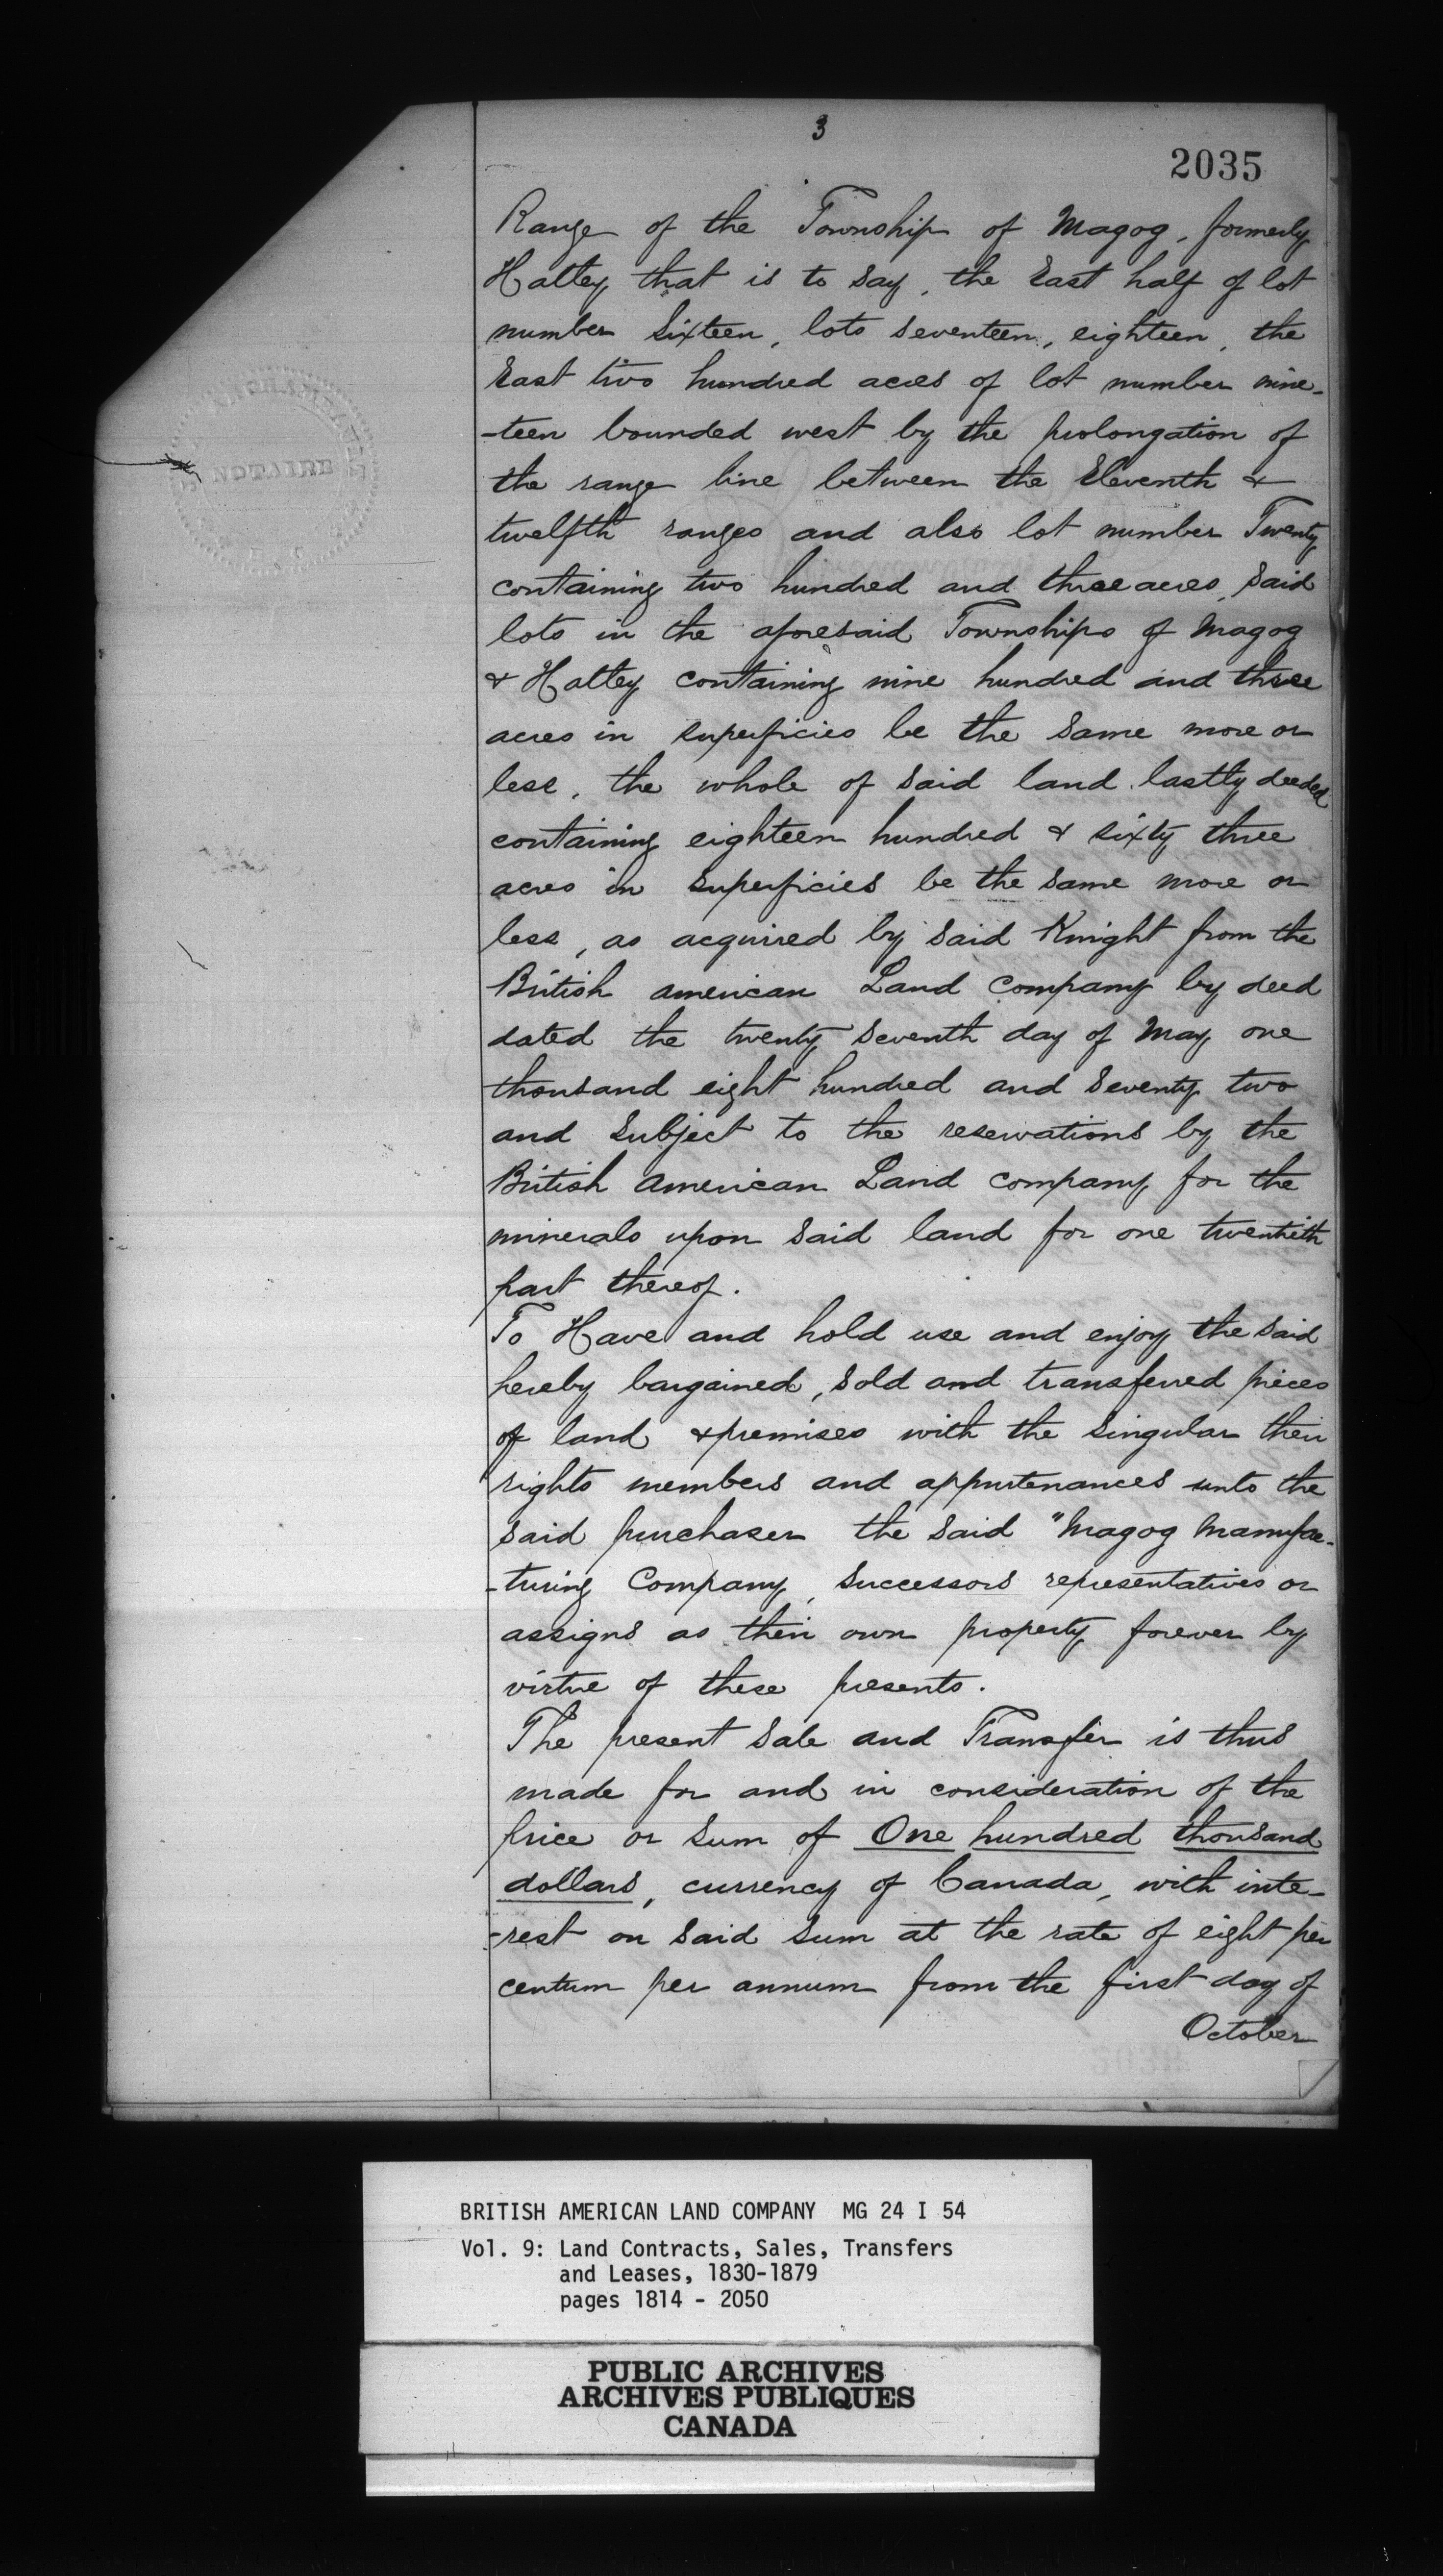 3
2035
Range of the Township of Magog, formerly
Hatley that is to say, the East half of lot
number Sixteen, lots seventeen, eighteen, the
East two hundred acres of lot number nine-
-teen bounded west by the prolongation of
the range line between the Eleventh &
twelfth ranges and also lot number Twenty
containing two hundred and three acres, said
lots in the aforesaid Townships of Magog
& Hatley containing nine hundred and three
acres in superficies be the same more or
less, the whole of said land lastly deeded
containing eighteen hundred & sixty three
acres in superficies be the same more or
less, as acquired by said Knight from the
British american Land Company by deed
dated the twenty seventh day of May one
thousand eight hundred and seventy two
and subject to the reservations by the
British American Land Company for the
minerals upon said land for one twentieth
part thereof.
To Have and hold use and enjoy the said
hereby bargained, sold and transferred pieces
of land & premises with the singular their
rights members and appurtenances unto the
said purchaser the said "Magog Manufac-
-turing Company, successors representatives or
assigns as their own property forever by
virtue of these presents.
The present sale and Transfer is thus
made for and in consideration of the
price or sum of One hundred thousand
dollars, currency of Canada, with inte-
-rest on said sum at the rate of eight per
centum per annum from the first day of
October
NOTAIRE
BRITISH AMERICAN LAND COMPANY MG 24 I 54
Vol. 9: Land Contracts, Sales, Transfers
and Leases, 1830-1879
pages 1814 - 2050
PUBLIC ARCHIVES
ARCHIVES PUBLIQUES
CANADA